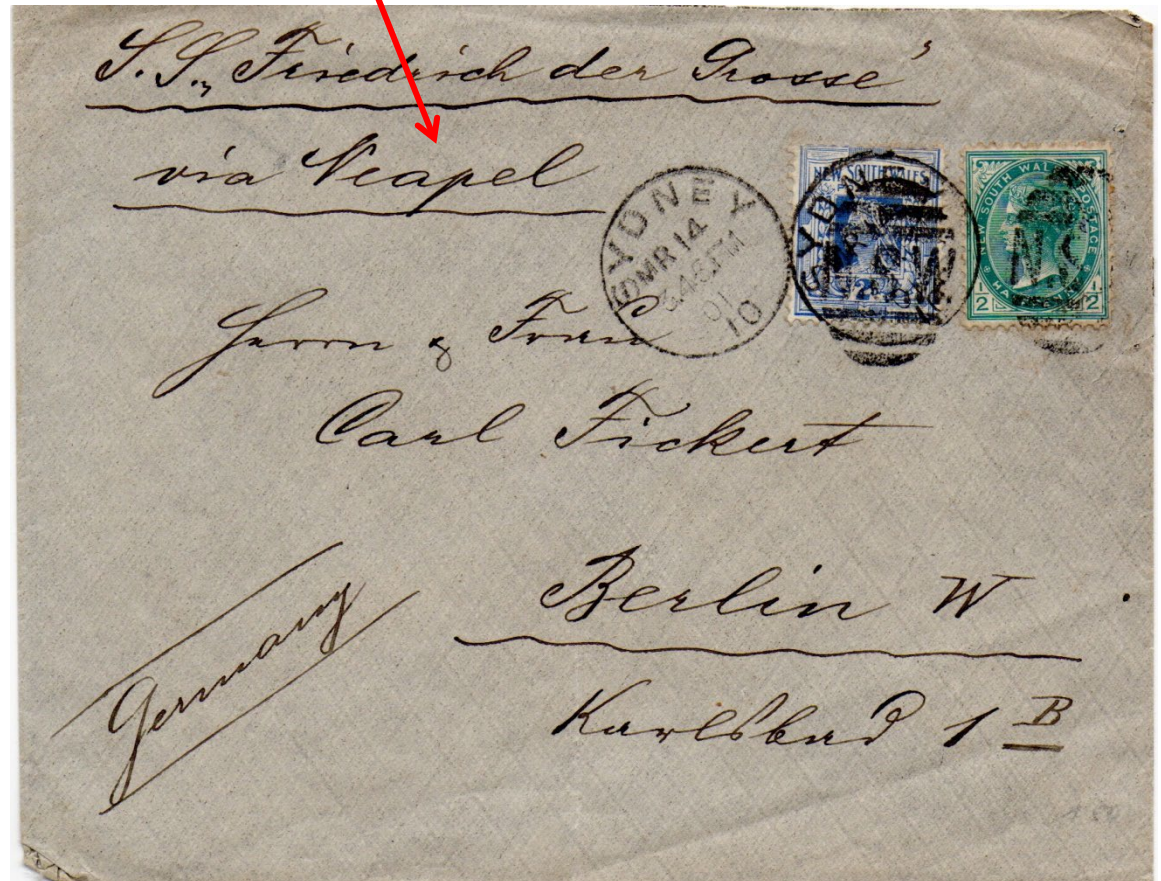 S.S. „Friedrich der Grosse"
via Neapel
SYDNEY
MR 14
5.45 PM
01
10
SYDNEY
NEW SOUTH WALES
2
NSW
NEW SOUTH WALES POSTAGE
HALF PENNY
1/2 1/2
NS
Herrn & Frau
Carl Fickert
Germany
Berlin W.
Karlsbad 1 B